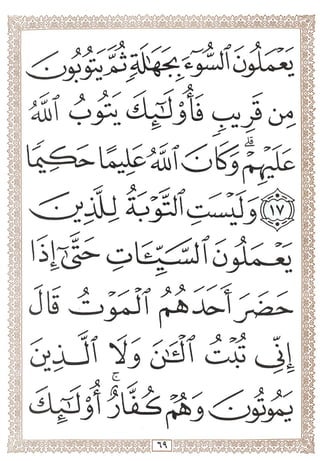 يَعۡمَلُونَ ٱلسُّوٓءَ بِجَهَٰلَةٖ ثُمَّ يَتُوبُونَ
مِن قَرِيبٖ فَأُوْلَٰٓئِكَ يَتُوبُ ٱللَّهُ
عَلَيۡهِمۡۗ وَكَانَ ٱللَّهُ عَلِيمًا حَكِيمٗا
١٧ وَلَيۡسَتِ ٱلتَّوۡبَةُ لِلَّذِينَ
يَعۡمَلُونَ ٱلسَّيِّـَٔاتِ حَتَّىٰٓ إِذَا
حَضَرَ أَحَدَهُمُ ٱلۡمَوۡتُ قَالَ
إِنِّي تُبۡتُ ٱلۡـَٰٔنَ وَلَا ٱلَّذِينَ
يَمُوتُونَ وَهُمۡ كُفَّارٌۚ أُوْلَٰٓئِكَ
٦٩